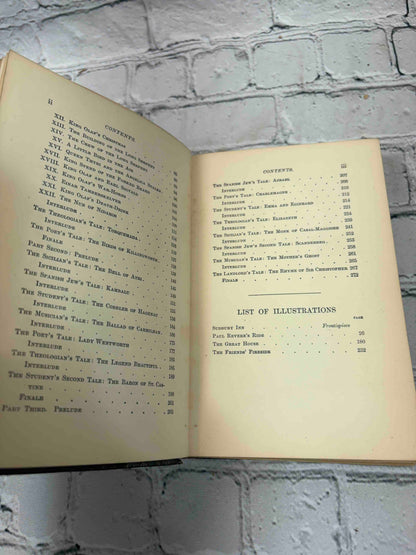 ii
CONTENTS
XII. King Olaf's Christmas
XIII. The Building of the Long Serpent
XIV. The Crew of the Long Serpent
XV. A Little Bird in the Air
XVI. Queen Thyri and the Angelica Stalks
XVII. King Svend of the Forked Beard
XVIII. King Olaf and Earl Sigvald
XIX. King Olaf's War-Horns
XX. Einar Tamberskelver
XXI. King Olaf's Death-Drink
XXII. The Nun of Nidaros
Interlude
The Theologian's Tale: Torquemada
Interlude
The Poet's Tale: The Birds of Killingworth
Finale
Part Second: Prelude
The Sicilian's Tale: The Bell of Atri
Interlude
The Spanish Jew's Tale: Kambalu
Interlude
The Student's Tale: The Cobbler of Hagenau
Interlude
The Musician's Tale: The Ballad of Carmilhan
Interlude
The Poet's Tale: Lady Wentworth
Interlude
The Theologian's Tale: The Legend Beautiful
Interlude
The Student's Second Tale: The Baron of St. Cas-
tine
Finale 201
Part Third. Prelude
CONTENTS iii
The Spanish Jew's Tale: Azrael
Interlude
The Poet's Tale: Charlemagne 210
Interlude
The Student's Tale: Emma and Eginhard 214
Interlude
The Theologian's Tale: Elizabeth
Interlude
The Sicilian's Tale: The Monk of Casal-Maggiore
Interlude
The Spanish Jew's Second Tale: Scanderbeg
Interlude
The Musician's Tale: The Mother's Ghost
Interlude
The Landlord's Tale: The Rhyme of Sir Christopher 267
Finale 272
LIST OF ILLUSTRATIONS
PAGE
Sudbury Inn Frontispiece
Paul Revere's Ride 26
The Great House 180
The Friends' Fireside 232